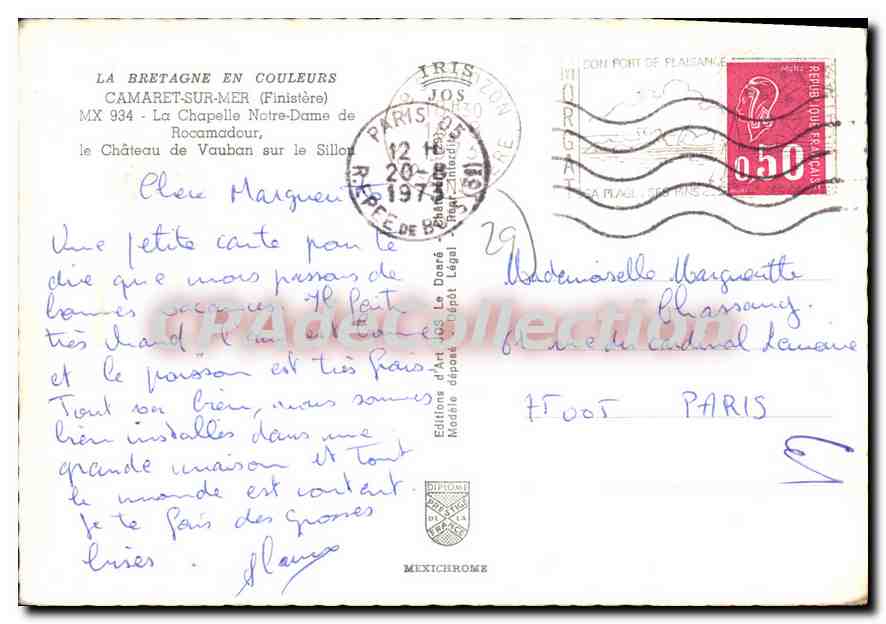 LA BRETAGNE EN COULEURS
CAMARET-SUR-MER (Finistère)
MX 934 - La Chapelle Notre-Dame de
Rocamadour,
le Château de Vauban sur le Sillon
Chère Marguerite
Une petite carte pour te
dire que nous passons de
bonnes vacances. Il fait
très chaud l'eau est bonne
et le poisson est très frais.
Tout va bien, nous sommes
bien installés dans une
grande maison et tout
le monde est content.
Je te fais des grosses
bises.
IRIS
JOS
Editions d'Art JOS Le Doaré - Châteaulin
Modèle déposé - Dépôt Légal - Repr. interdite
DIPLOME
PRESTIGE
DE LA
FRANCE
MEXICHROME
PARIS 05
12 H
20-8
1973
MORGAT
SON PORT DE PLAISANCE
SA PLAGE SES PINS
REPUBLIQUE FRANCAISE
0,50
29
Mademoiselle Marguerite
Chassang.
rue du Cardinal Lemoine
75005 PARIS
CPAdeCollection